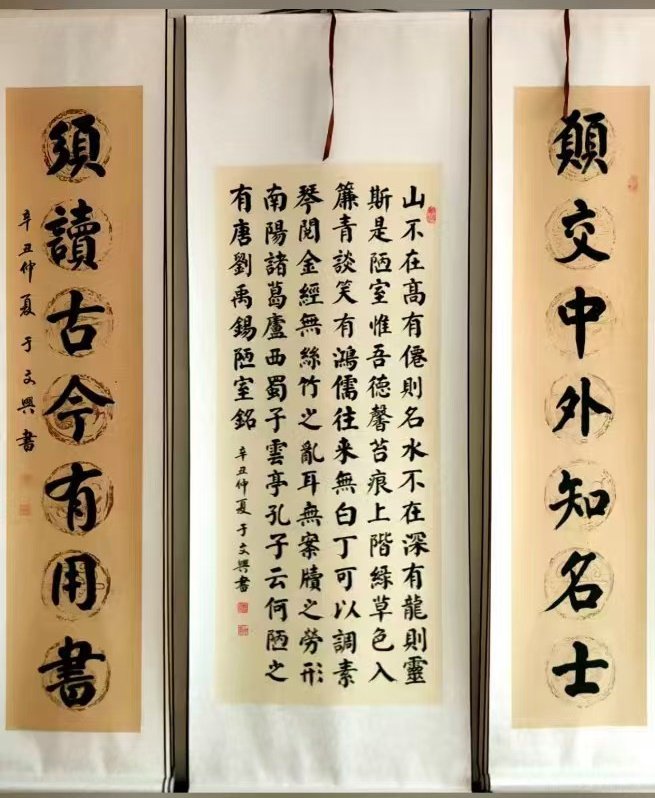 願交中外知名士
山不在高有僊則名水不在深有龍則靈
斯是陋室惟吾德馨苔痕上階緑草色入
簾青談笑有鴻儒往来無白丁可以調素
琴閲金經無絲竹之亂耳無案牘之勞形
南陽諸葛廬西蜀子雲亭孔子云何陋之
有唐劉禹錫陋室銘
辛丑仲夏于文興書
須讀古今有用書
辛丑仲夏于文興書